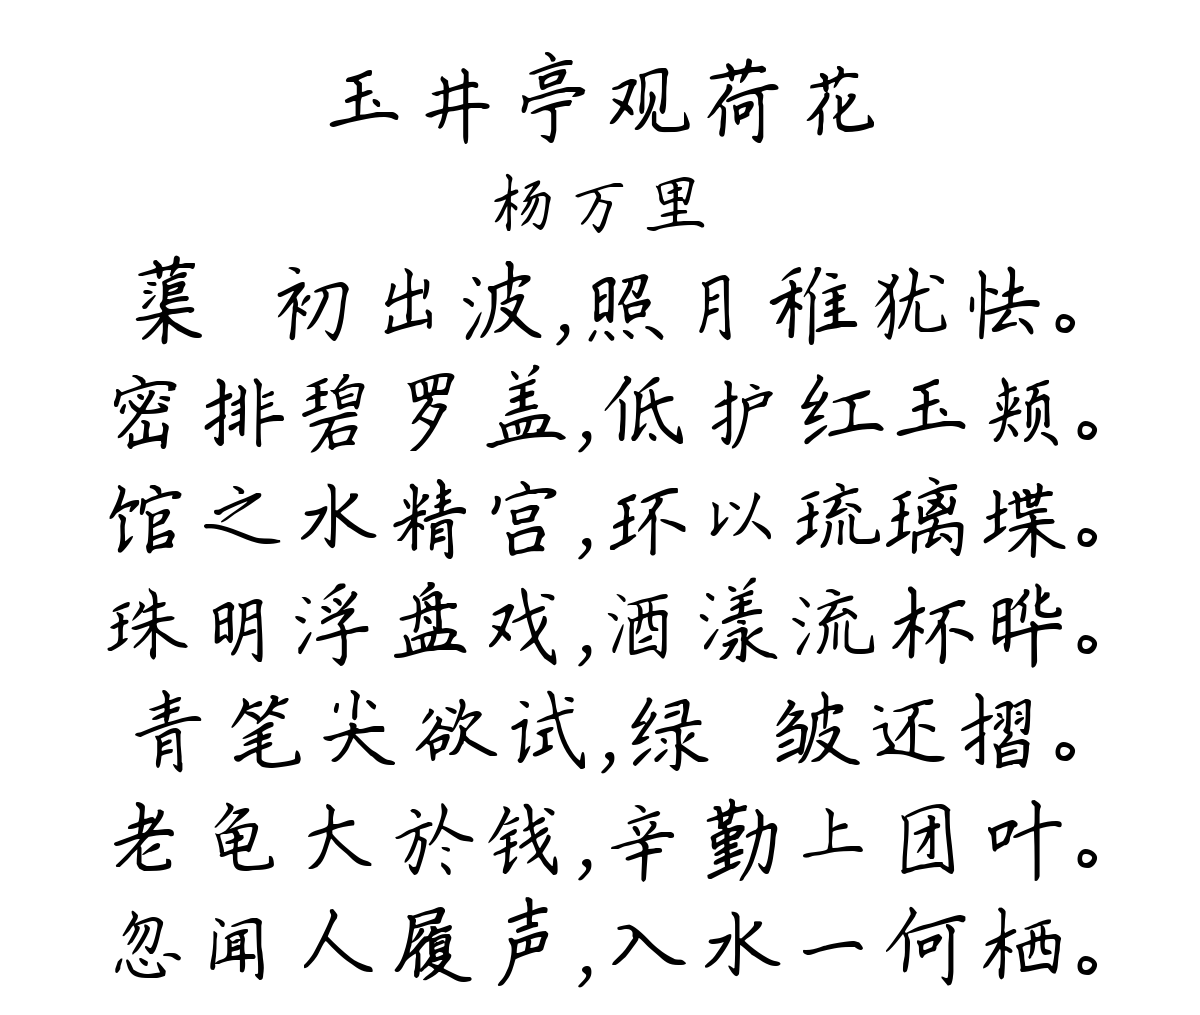 玉井亭观荷花
杨万里
蕖 初出波,照月稚犹怯。
密排碧罗盖,低护红玉颊。
馆之水精宫,环以琉璃堞。
珠明浮盘戏,酒漾流杯晔。
青笔尖欲试,绿 皱还摺。
老龟大於钱,辛勤上团叶。
忽闻人履声,入水一何栖。